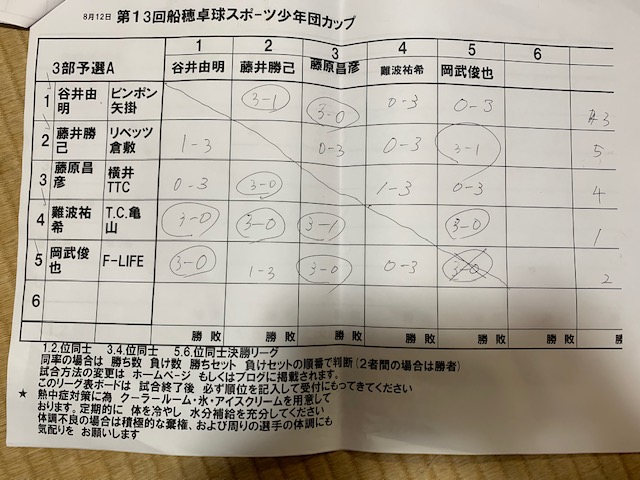 8月12日 第13回船穂卓球スポーツ少年団カップ
1 2 3 4 5 6
3部予選A 谷井由明 藤井勝己 藤原昌彦 難波祐希 岡武俊也
1 谷井由明 ピンポン矢掛 3-1 3-0 0-3 0-3 3
2 藤井勝己 リベッツ倉敷 1-3 0-3 0-3 3-1 5
3 藤原昌彦 横井TTC 0-3 3-0 1-3 0-3 4
4 難波祐希 T.C.亀山 3-0 3-0 3-1 3-0 1
5 岡武俊也 F-LIFE 3-0 1-3 3-0 0-3 3-0 2
6
勝 敗 勝 敗 勝 敗 勝 敗 勝 敗 勝 敗 勝
1.2.位同士 3.4.位同士 5.6.位同士決勝リーグ
同率の場合は 勝ち数 負け数 勝ちセット 負けセットの順番で判断(2者間の場合は勝者)
試合方法の変更は ホームページ もしくはブログに掲載されます。
このリーグ表ボードは 試合終了後 必ず順位を記入して受付にもってきてください
★ 熱中症対策に為 クーラールーム・氷・アイスクリームを用意して
おります。定期的に 体を冷やし 水分補給を充分してください
体調不良の場合は積極的な棄権、および周りの選手の体調にも
気配りを お願いします